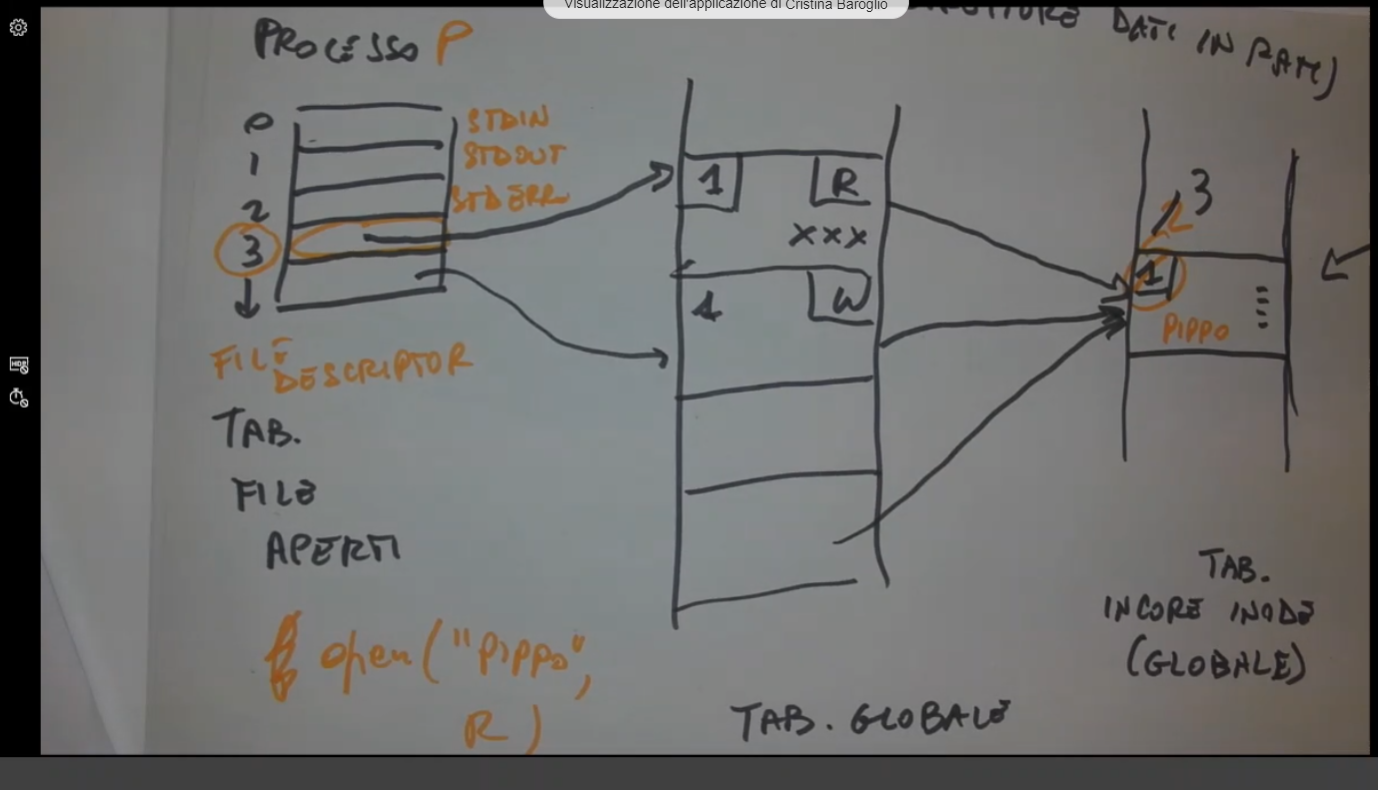 Visualizzazione dell'applicazione di Cristina Baroglio
DATI IN RAM)
PROCESSO P
0
1
2
3
STDIN
STDOUT
STDERR
FILE
DESCRIPTOR
TAB.
FILE
APERTI
open("PIPPO",
R)
1 R
XXX
1 W
TAB. GLOBALE
2 3
1
PIPPO
TAB.
INCORE INODE
(GLOBALE)